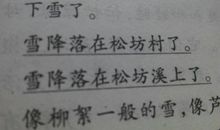 下雪了。
雪降落在松坊村了。
雪降落在松坊溪上了。
像柳絮一般的雪,像芦